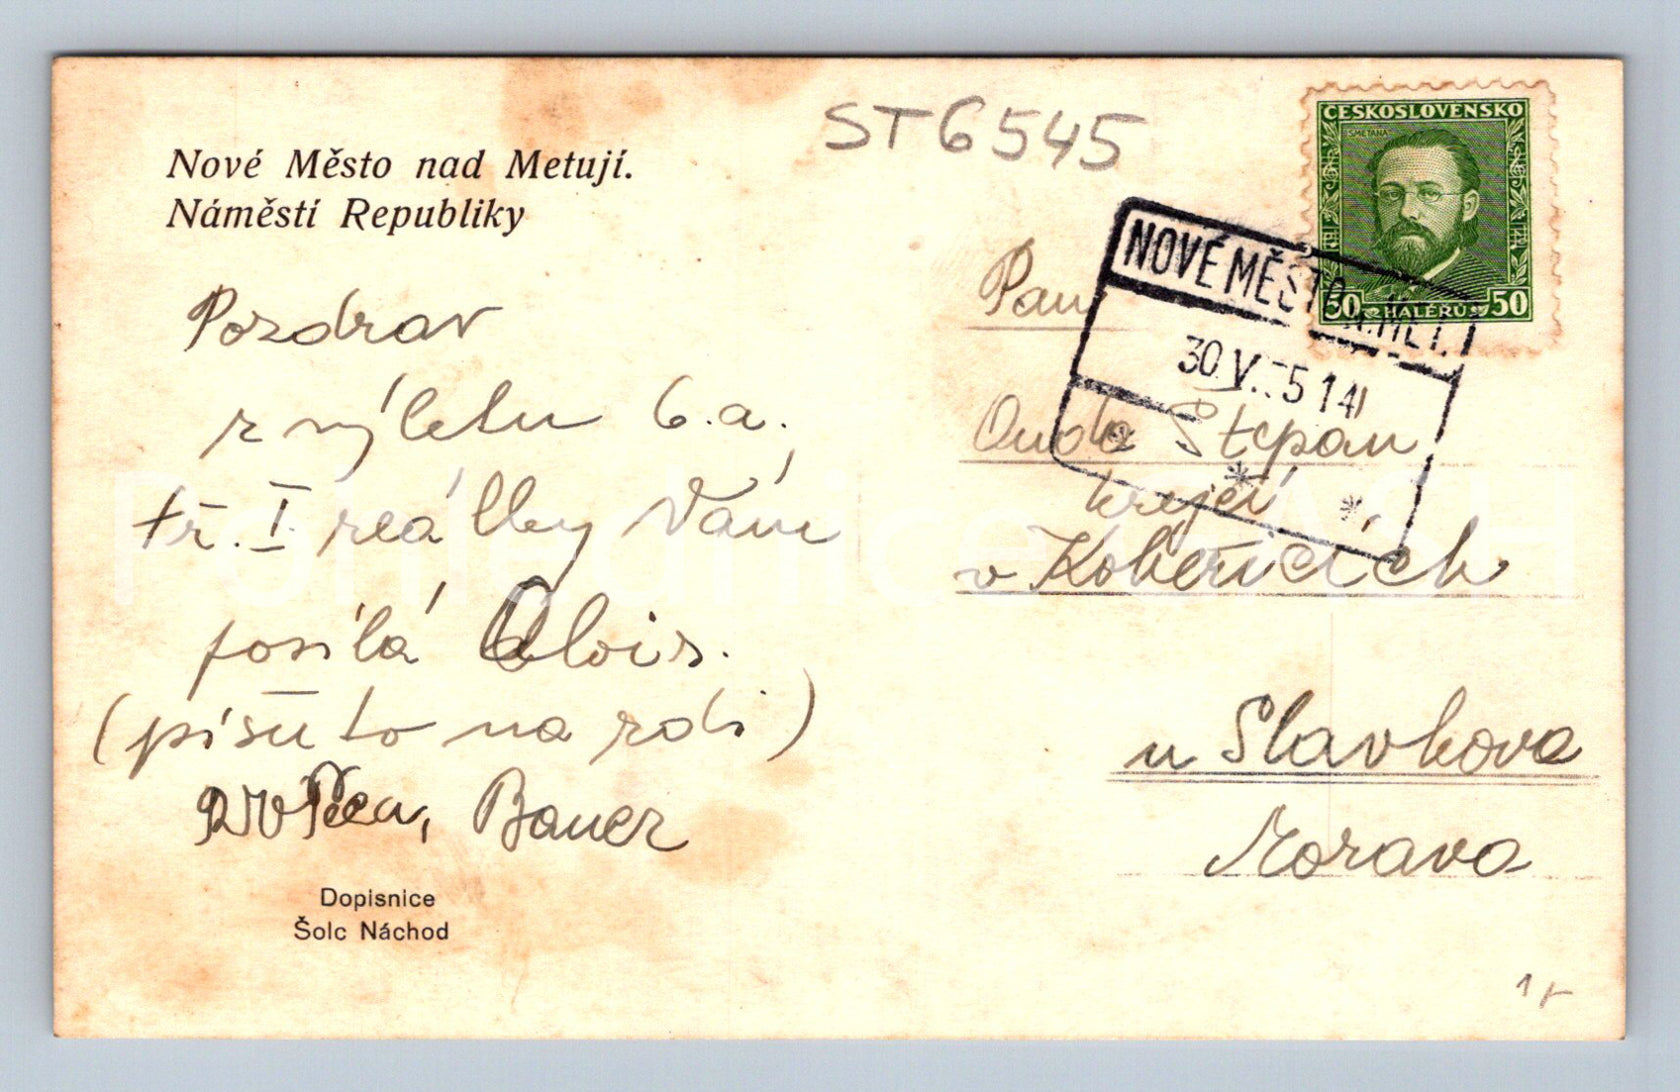 Nové Město nad Metují.
Náměstí Republiky
ST6545
ČESKOSLOVENSKO
SMETANA
50 HALÉŘŮ 50
NOVÉ MĚSTO N. MET.
30.V. 5 14
Pozdrav
z výletu 6.a.
tř. I. reálky Vám
posílá Alois.
(píšu to na zdi)
Bauer
Dopisnice
Šolc Náchod
Pan
Štěpán
krejčí
v Kobeřicích
u Slavkova
Morava